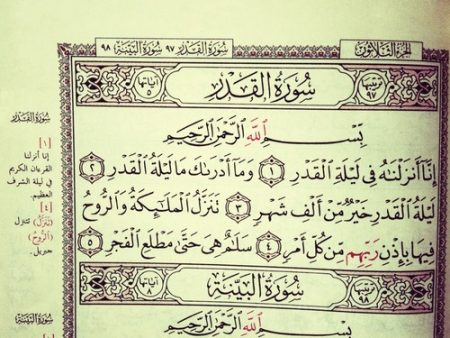 الجزء الثلاثون
سورة القدر ٩٧ سورة البينة ٩٨
ترتيبها ٩٧ سُورَةُ الْقَدْرِ آياتها ٥
بِسْمِ اللَّهِ الرَّحْمَٰنِ الرَّحِيمِ
إِنَّا أَنزَلْنَٰهُ فِي لَيْلَةِ الْقَدْرِ ١ وَمَا أَدْرَىٰكَ مَا لَيْلَةُ الْقَدْرِ ٢
لَيْلَةُ الْقَدْرِ خَيْرٌ مِّنْ أَلْفِ شَهْرٍ ٣ تَنَزَّلُ الْمَلَٰٓئِكَةُ وَالرُّوحُ
فِيهَا بِإِذْنِ رَبِّهِم مِّن كُلِّ أَمْرٍ ٤ سَلَٰمٌ هِيَ حَتَّىٰ مَطْلَعِ الْفَجْرِ ٥
ترتيبها ٩٨ سُورَةُ الْبَيِّنَةِ آياتها ٨
بِسْمِ اللَّهِ الرَّحْمَٰنِ الرَّحِيمِ
سورة القدر
[١]
إنا أنزلنا
القرءان الكريم
في ليلة الشرف
العظيم.
[٤]
(تَنَزَّلُ) تتنزل
(الرُّوحُ)
جبريل.
سورة البينة